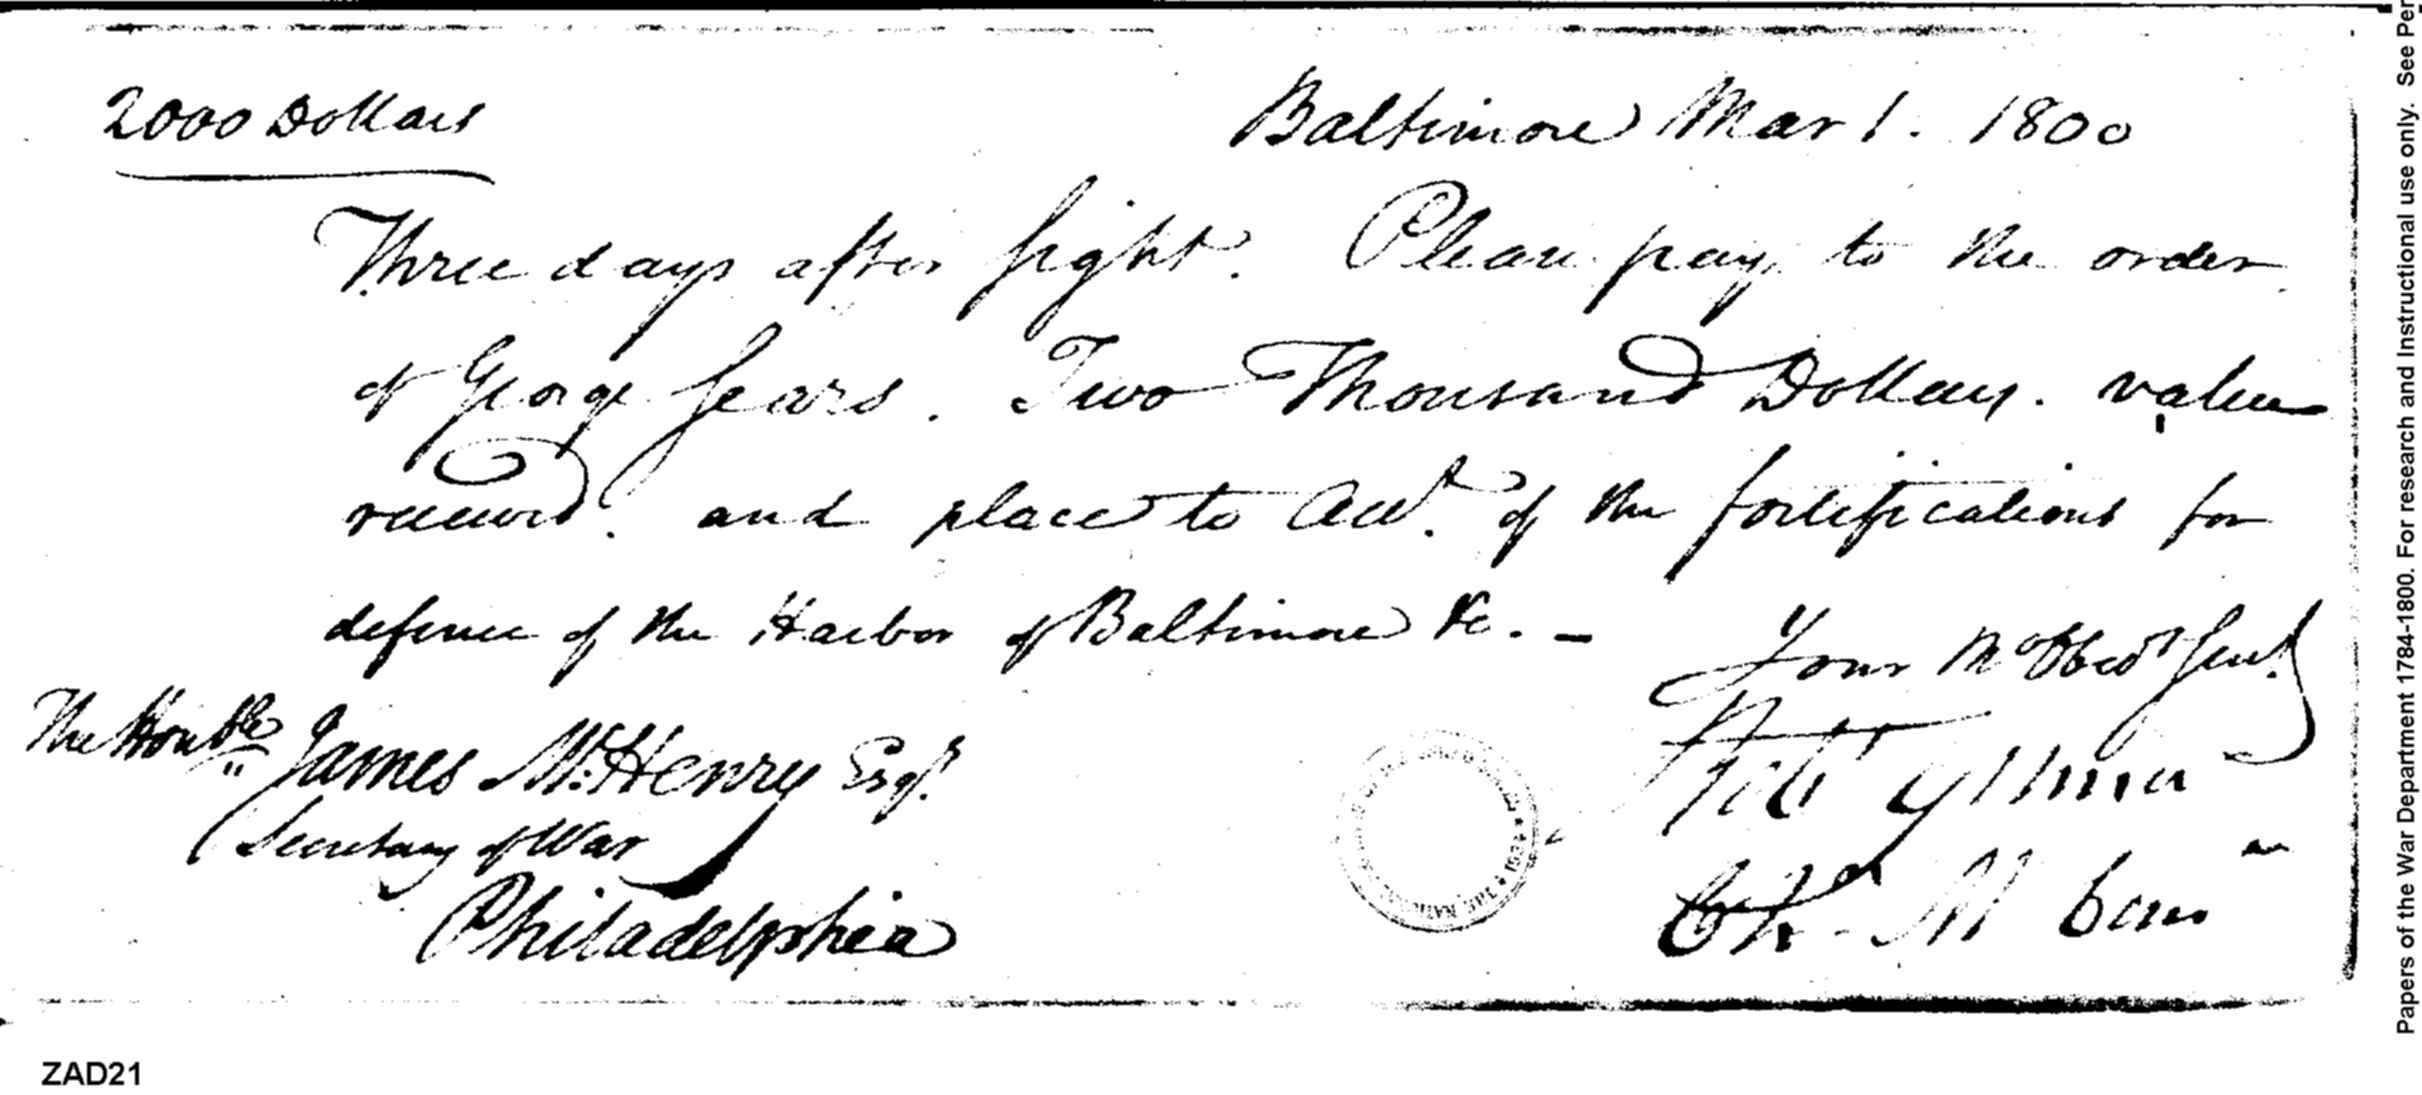 2000 Dollars
Baltimore Mar 1. 1800
Three days after sight. Please pay to the order
of George Sears. Two Thousand Dollars. value
received. and place to Acct. of the fortifications for
defence of the Harbor of Baltimore &c. -
Your M Obedt Servt
The Honble James McHenry Esqr.
Secretary of War
Philadelphia
ZAD21
Papers of the War Department 1784-1800. For research and Instructional use only. See Per